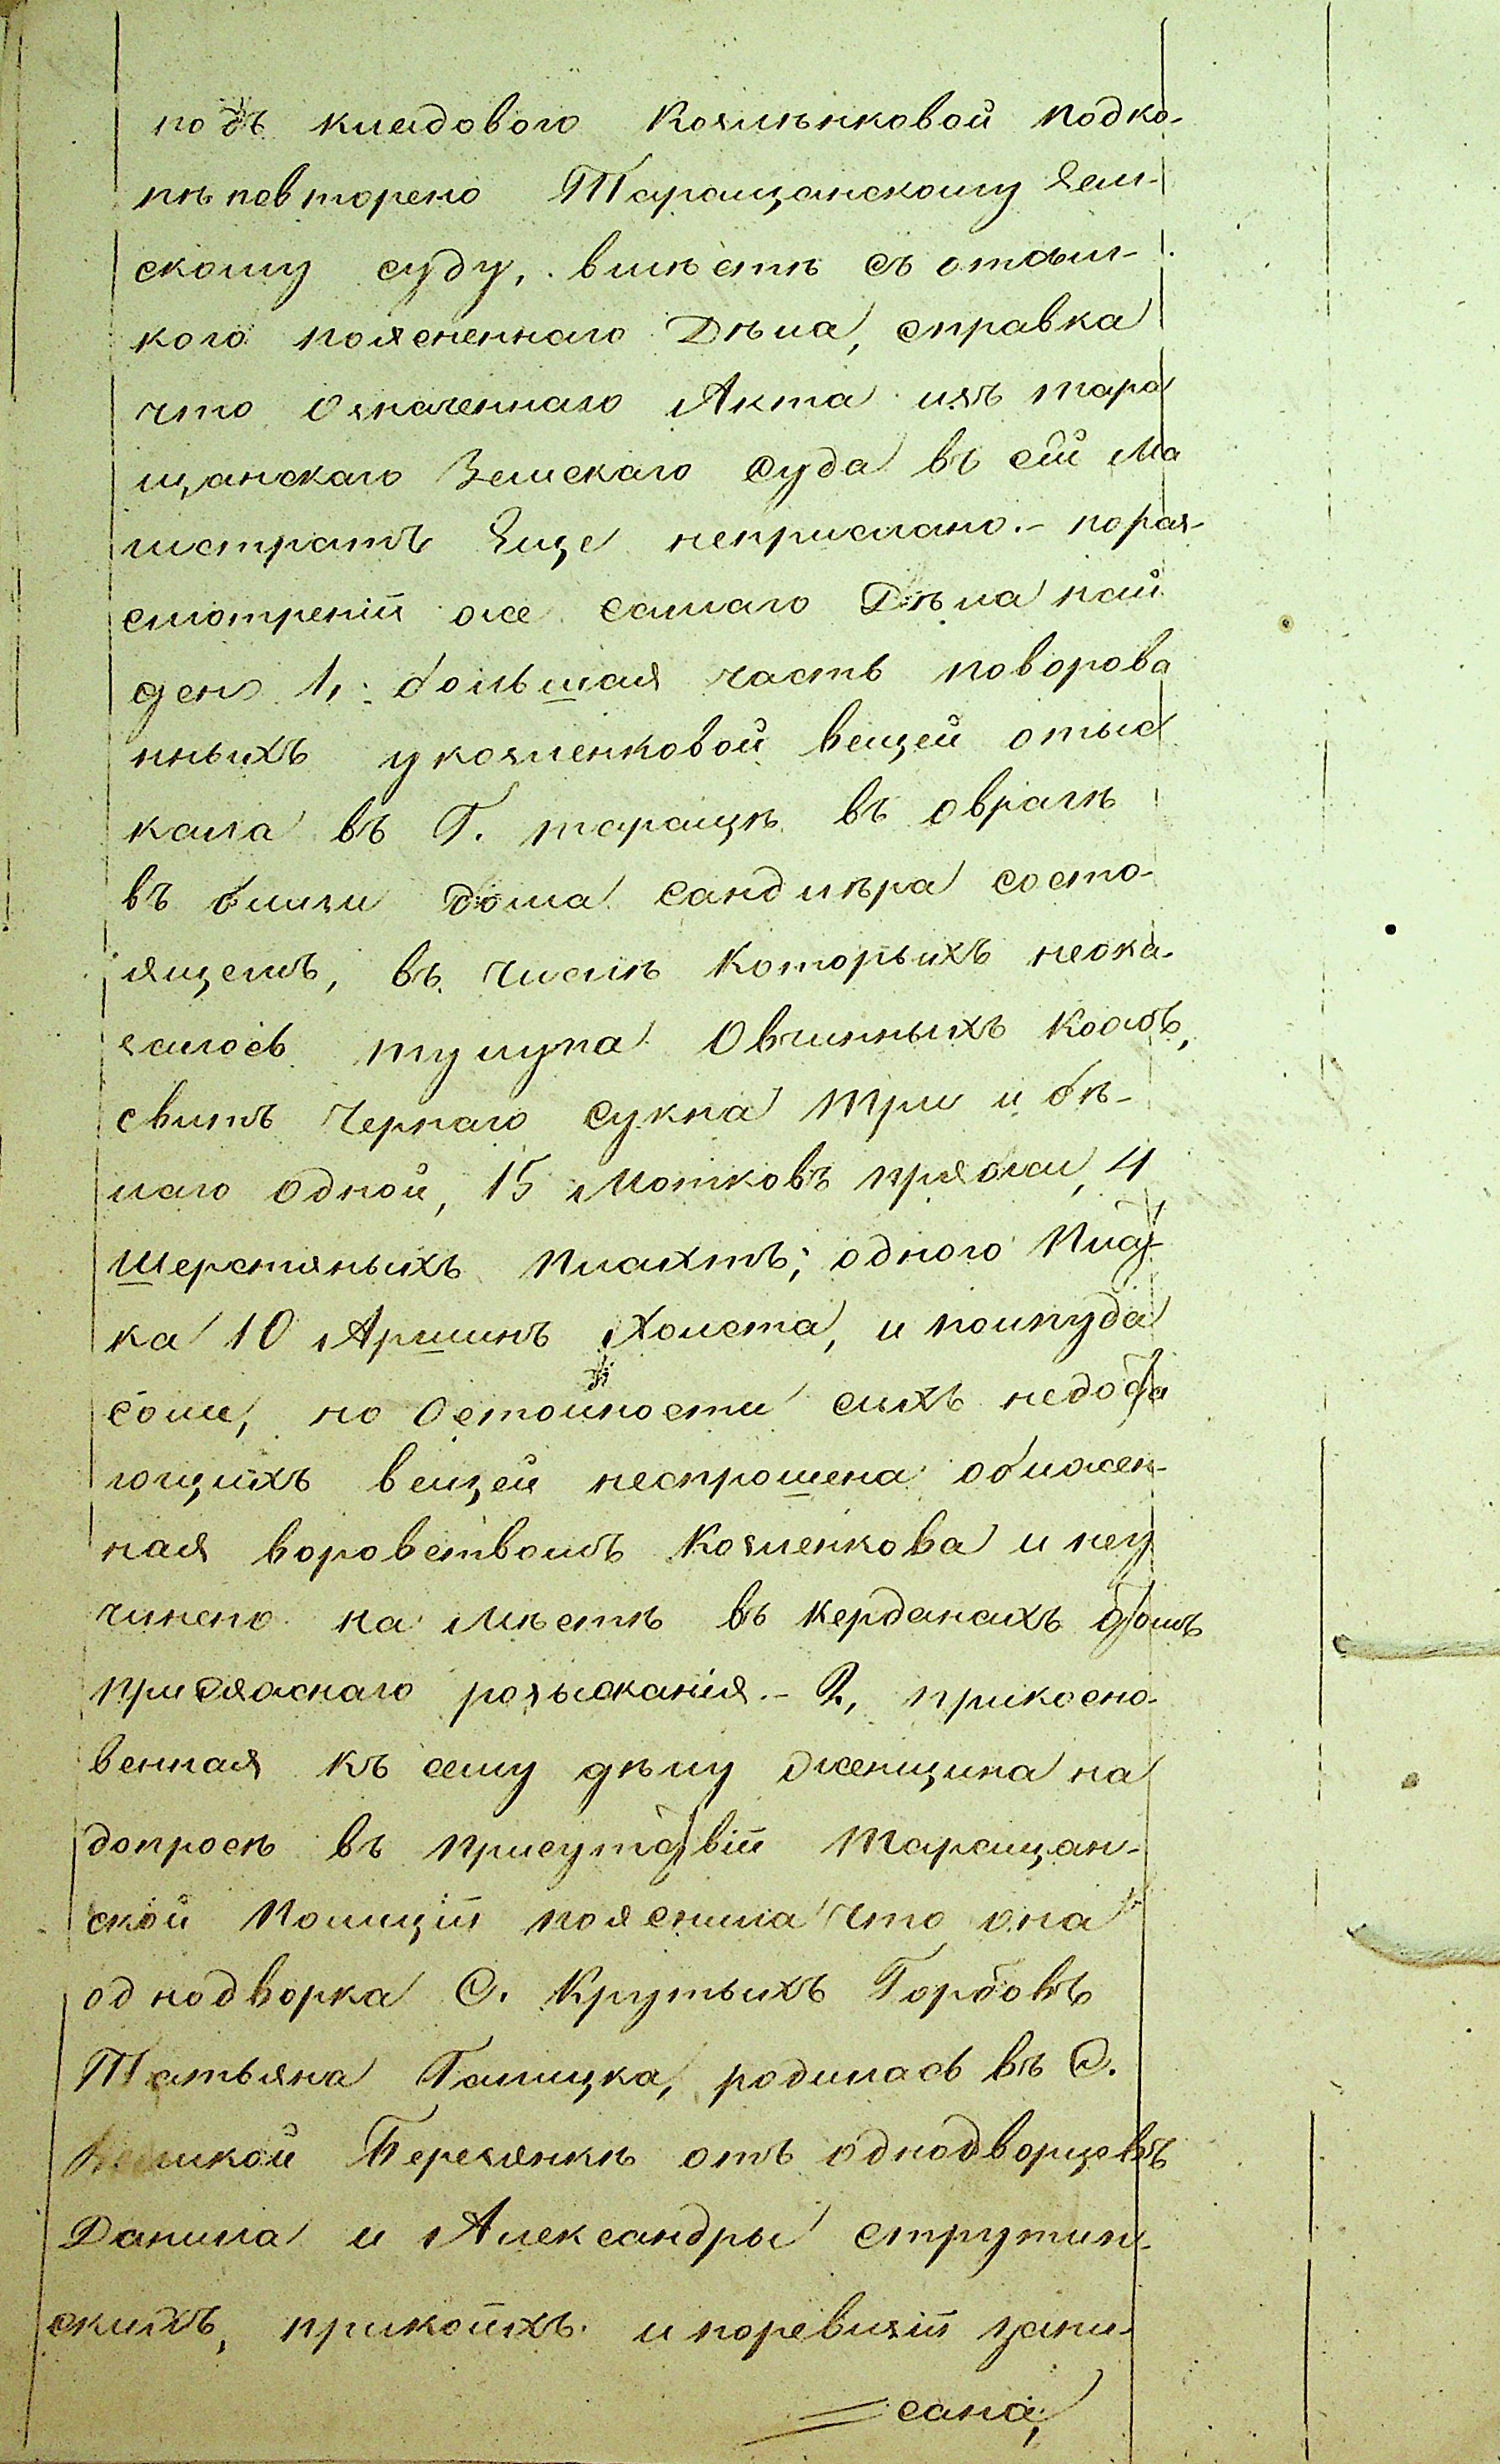 подъ кладового Козлѣнковой подко-
пѣ повторено Таращанскому Зем-
скому суду, вмѣстѣ съ отсыл-
кого пояснennаго Дѣла, справка
что означеннаго Акта изъ тара
щанскаго Земскаго Суда въ сій Ма
гистратъ Еще неприслано.- пораз-
смотреній же самаго Дѣла най
дено 1, большая часть поворова
нныхъ укозленковой вещей отыс
кала въ Г. таращѣ въ оврагѣ
въ близи дома Сандлѣра состо-
ящемъ, въ числѣ которыхъ неока-
залось тулупа Овчинныхъ кожъ,
свитъ Чернаго Сукна три и бѣ-
лаго одной, 15 Мотковъ пряжи, 4
шерстяныхъ плахтъ; одного Плат
ка 10 Аршинъ Холста, и полпуда
соли, но Остоиности сихъ недоста
ющихъ вещей неспрошена облжен-
ная воровствомъ Козленкова и неу
чинено на Мѣстѣ въ керданахъ домъ
присяжнаго розысканія.- 2, прикосно-
венная къ сему дѣлу женщина на
допросѣ въ присутствій Таращан-
ской Полиціи пояснила что она
однодворка С. Крутыхъ Горбовъ
Татьяна Галицка, родилась въ С.
Великой Березянкѣ отъ однодворцовъ
Данила и Александры струтин-
скихъ, прикоихъ и поревизій запи-
сана,